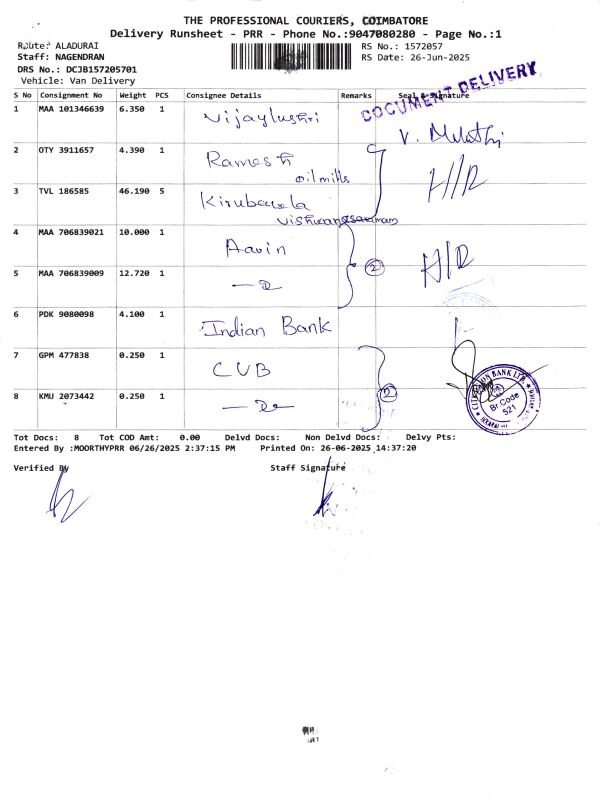 THE PROFESSIONAL COURIERS, COIMBATORE
Delivery Runsheet - PRR - Phone No.:9047080280 - Page No.:1
Route: ALADURAI
Staff: NAGENDRAN
DRS No.: DCJB157205701
Vehicle: Van Delivery
RS No.: 1572057
RS Date: 26-Jun-2025
DOCUMENT DELIVERY
S No Consignment No Weight PCS Consignee Details Remarks Seal & Signature
1 MAA 101346639 6.350 1 Vijaylushri V.
2 OTY 3911657 4.390 1 Ramesh oil mills H/R
3 TVL 186585 46.190 5 Kirubavela
4 MAA 706839021 10.000 1 Aavin H/R
5 MAA 706839009 12.720 1 2
6 PDK 9080098 4.100 1 Indian Bank
7 GPM 477838 0.250 1 CUB
8 KMU 2073442 0.250 1 2
CITY UNION BANK LTD.
Br.Code
521
Tot Docs: 8 Tot COD Amt: 0.00 Delvd Docs: Non Delvd Docs: Delvy Pts:
Entered By :MOORTHYPRR 06/26/2025 2:37:15 PM Printed On: 26-06-2025 14:37:20
Verified By Staff Signature